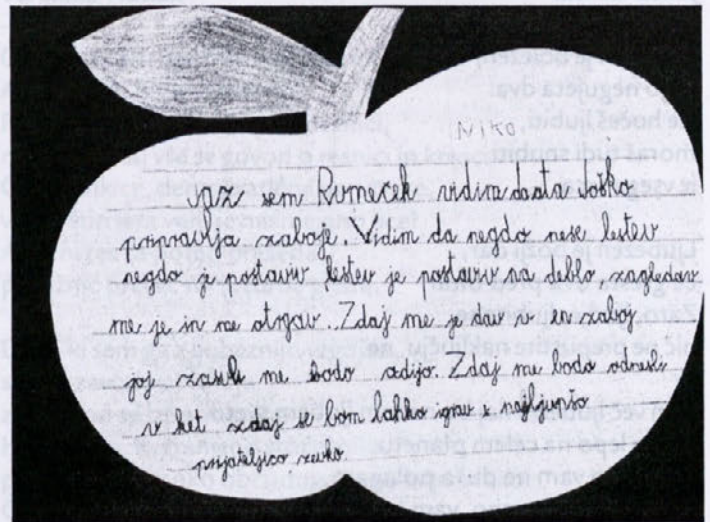 Niko
Jaz sem Rumeček vidim da ata Joško
pripravlja zaboje. Vidim da negdo nese lestev
negdo j postaviv lestev je postaviv na deblo zagledav
me je in me otrgav. Zdaj me je dav v ta zaboj
joj zasuli me bodo adijo. Zdaj me bodo odnesli
v ket zdaj se bom lahko igrav z najljupšo
prijateljico